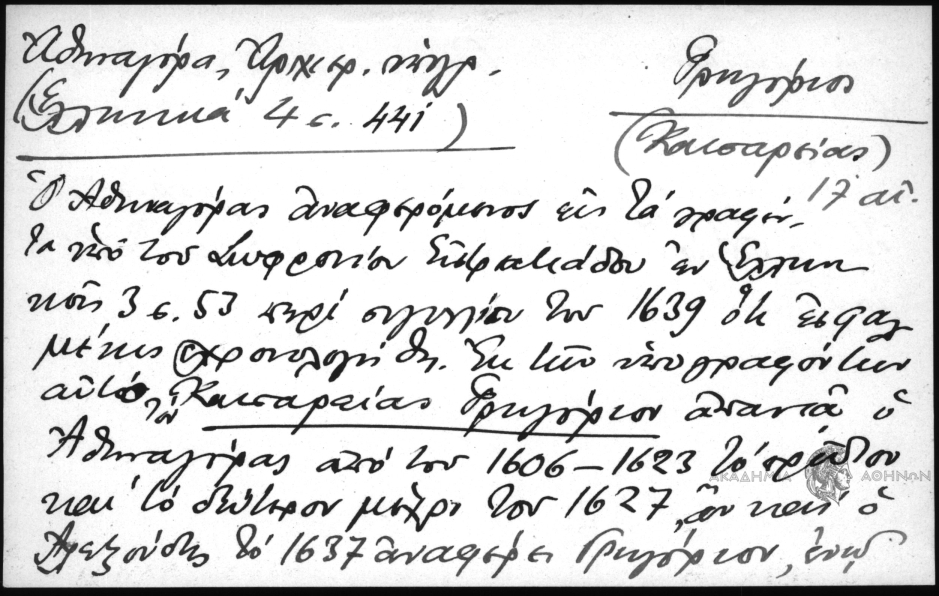 Ἀθηναγόρα, Ἀρχιερ. ὑπογρ.
(Ἑλληνικά 4 σ. 441)
Γρηγόριος
(Καισαρείας)
17 αἰ.
Ὁ Ἀθηναγόρας ἀναφερόμενος εἰς τά γραφέν-
τα ὑπό του Σωφρονίου Εὐστρατιάδου ἐν Ἑλλην
κοῖς 3 σ. 53 περί σιγιλλίου του 1639 ὅτι ἐσφαλ
μένως ἐχρονολογήθη. Ἐκ τῶν ὑπογραφόντων
αὐτό, τόν Καισαρείας Γρηγόριον ἀπαντᾶ ὁ
Ἀθηναγόρας ἀπό του 1606-1623 τό πρῶτον
και τό δεύτερον μέχρι του 1627, ἄν και ὁ
Ἀλεξούδης τό 1637 ἀναφέρει Γρηγόριον, ἐνῷ
ΑΚΑΔΗΜΙΑ ΑΘΗΝΩΝ